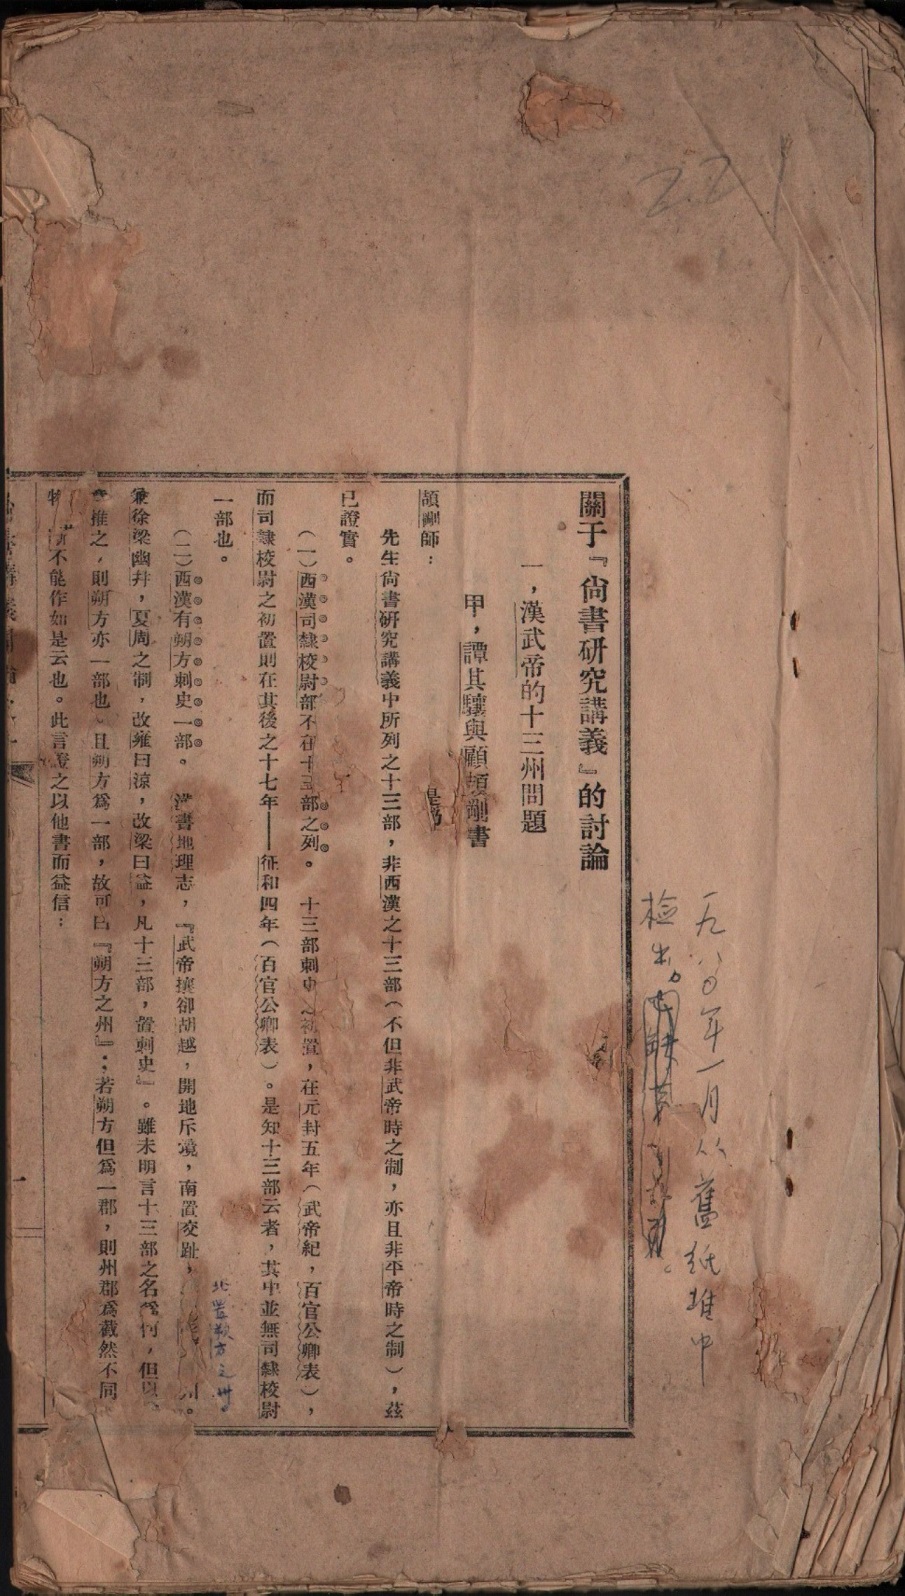 22
一九八〇年一月从舊紙堆中
檢出。
關于『尙書研究講義』的討論
一，漢武帝的十三州問題
甲，譚其驤與顧頡剛書
頡剛師：
先生尙書研究講義中所列之十三部，非西漢之十三部（不但非武帝時之制，亦且非平帝時之制），茲
已證實。
（一）西漢司隸校尉部不在十三部之列。　十三部刺史之初置，在元封五年（武帝紀，百官公卿表），
而司隸校尉之初置則在其後之十七年——征和四年（百官公卿表）。是知十三部云者，其中並無司隸校尉
一部也。
（二）西漢有朔方刺史一部。　漢書地理志，『武帝攘卻胡越，開地斥境，南置交趾，
北置朔方之州。
兼徐梁幽幷，夏周之制，改雍曰涼，改梁曰益，凡十三部，置刺史』。雖未明言十三部之名爲何，但以
推之，則朔方亦一部也。且朔方爲一部，故可曰『朔方之州』；若朔方但爲一郡，則州郡爲截然不同
不能作如是云也。此言證之以他書而益信：